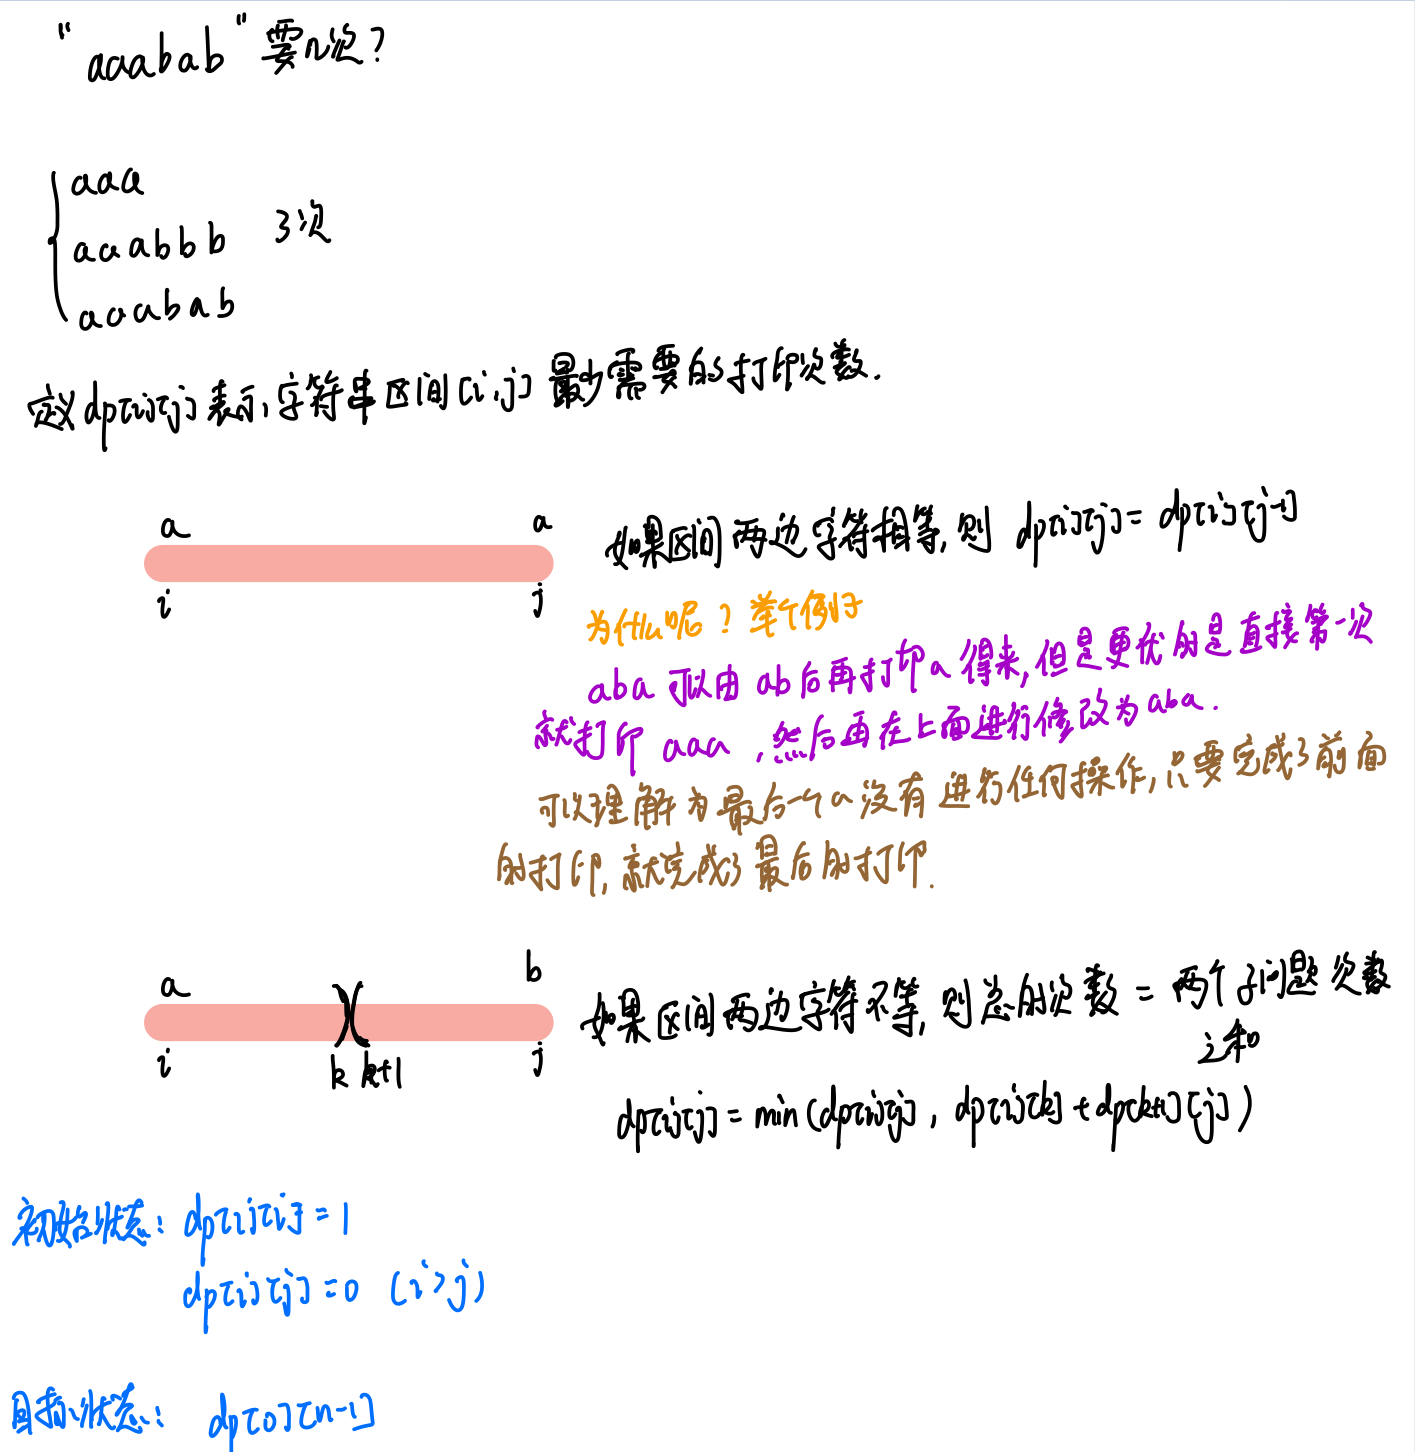 "aaabab"要几次?
aaa
aaabbb 3次
aaabab
定义dp[i][j]表示,字符串区间[i,j]最少需要的打印次数.
a a
i j
如果区间两边字符相等,则 dp[i][j]= dp[i][j-1]
为什么呢?举个例子
aba 可以由 ab后再打印a 得来,但是更优的是直接第一次
就打印 aaa,然后再在上面进行修改为aba.
可以理解为最后一个a没有进行任何操作,只要完成了前面
的打印,就完成了最后的打印.
a b
i k k+1 j
如果区间两边字符不等,则总的次数 = 两个子问题次数
之和
dp[i][j] = min(dp[i][j], dp[i][k] + dp[k+1][j])
初始状态: dp[i][i] = 1
dp[i][j] = 0 (i>j)
目标状态: dp[0][n-1]